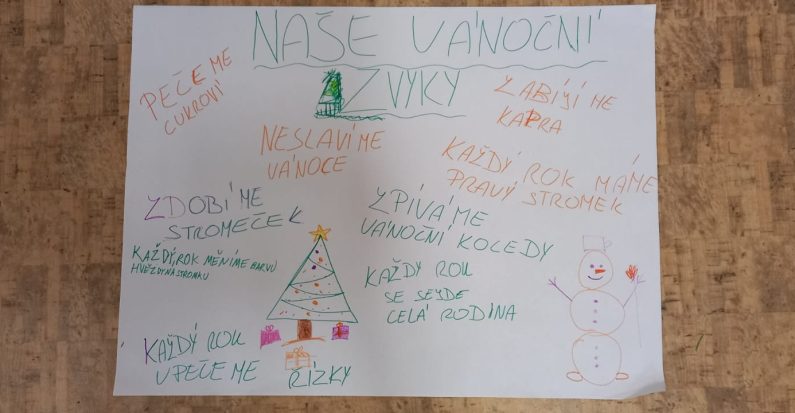 NAŠE VÁNOČNÍ
ZVYKY
PEČEME
CUKROVÍ
ZABÍJÍME
KAPRA
NESLAVÍME
VÁNOCE
KAŽDÝ ROK MÁME
PRAVÝ STROMEK
ZDOBÍME
STROMEČEK
KAŽDÝ ROK MĚNÍME BARVU
HVĚZDY NA STROMKU
ZPÍVÁME
VÁNOČNÍ KOLEDY
KAŽDÝ ROK
SE SEJDE
CELÁ RODINA
KAŽDÝ ROK
UPEČEME ŘÍZKY